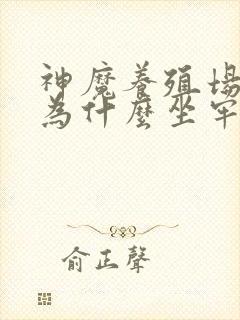 神魔養殖場
為什麼坐牢
俞正聲